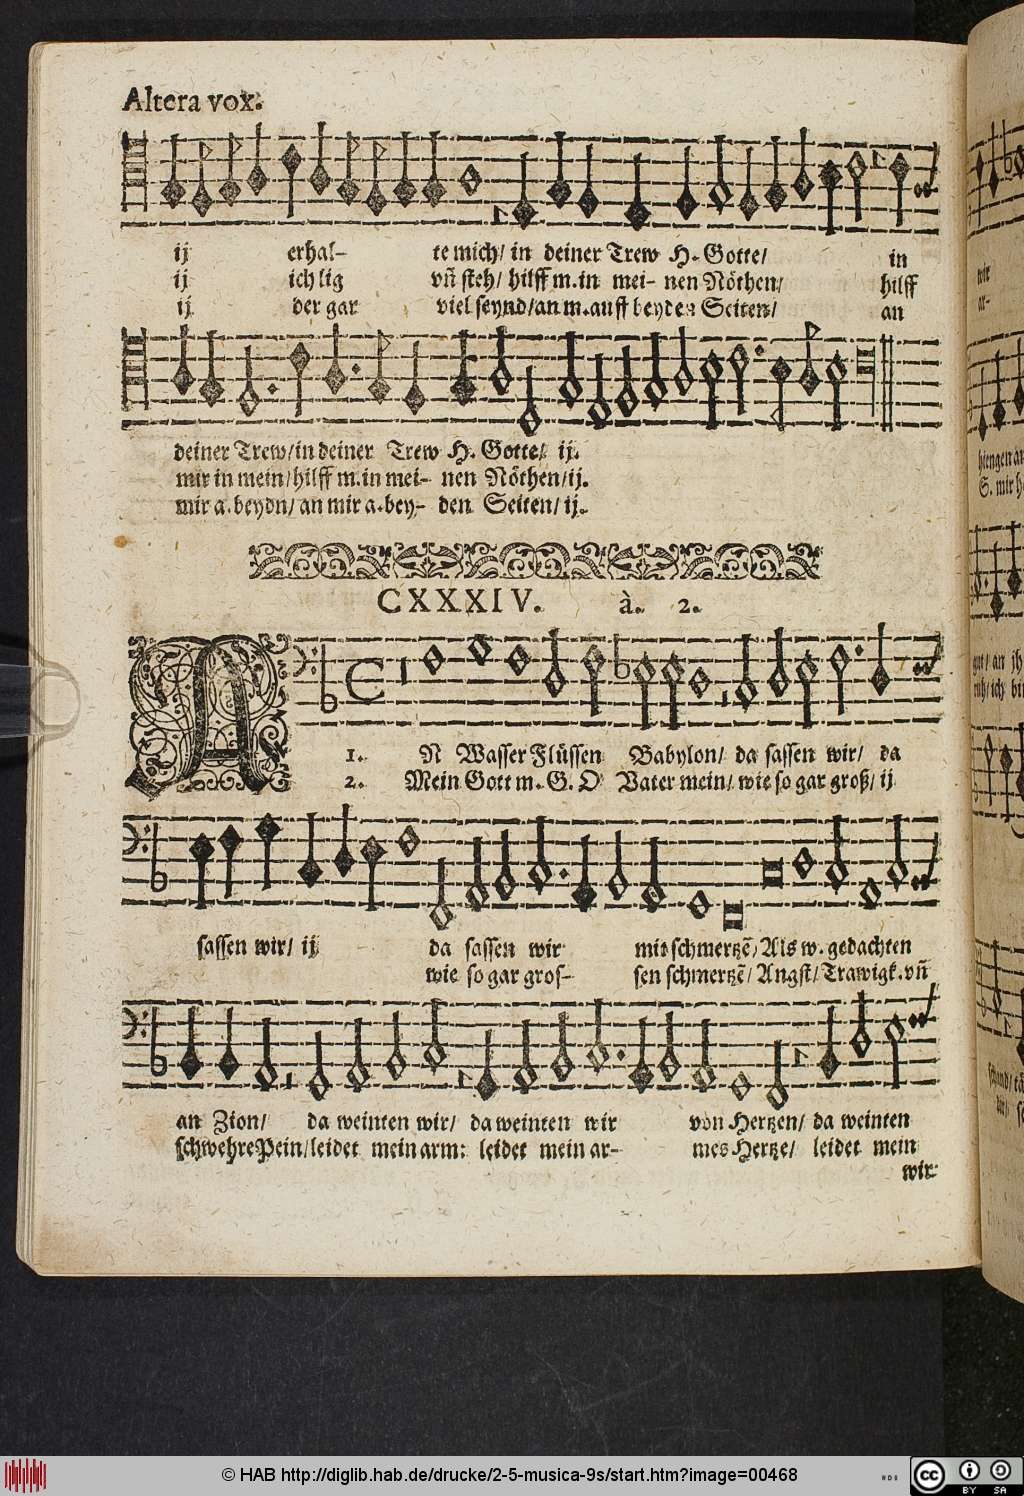 Altera vox.
ij erhal- te mich/ in deiner Trew H. Gotte/ in
ij ich lig vñ steh/ hilff m.in mei- nen Nöthen/ hilff
ij der gar viel seynd/an m.auff beyden Seiten/ an
deiner Trew/in deiner Trew H. Gotte/ ij.
mir in mein/hilff m.in mei- nen Nöthen/ij.
mir a.beydn/ an mir a.bey- den Seiten/ ij.
CXXXIV. à. 2.
A
1. N Wasser Flüssen Babylon/ da sassen wir/ da
2. Mein Gott m. G. O Vater mein/ wie so gar groß/ ij
sassen wir/ ij da sassen wir mit schmertzẽ/ Als w. gedachten
wie so gar gros- sen schmertzẽ/ Angst/ Trawigk.vñ
an Zion/ da weinten wir/ da weinten wir von Hertzen/ da weinten
schwehre Pein/leidet mein arm: leidet mein ar- mes Hertze/ leidet mein
wir
© HAB http://diglib.hab.de/drucke/2-5-musica-9s/start.htm?image=00468
cc BY SA